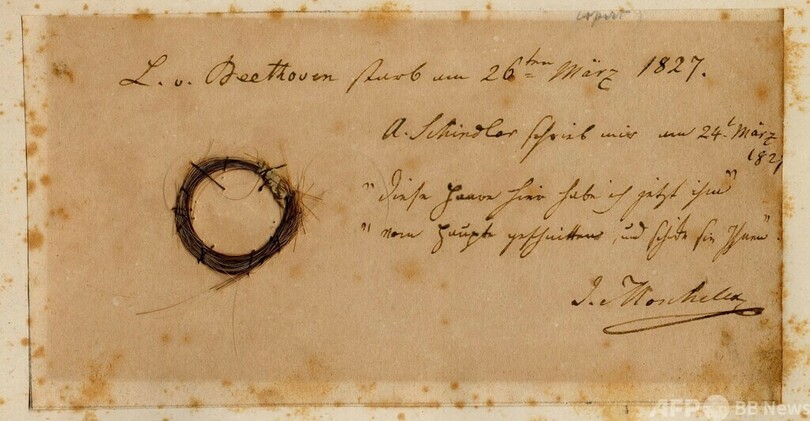 L. v. Beethoven starb am 26ten März 1827.
A. Schindler schrieb mir am 24t März
1827
"diese Haare hier habe ich jetzt ihm"
"vom Haupte geschnitten, und schicke sie Ihnen".
I. Moscheles
AFP BB News